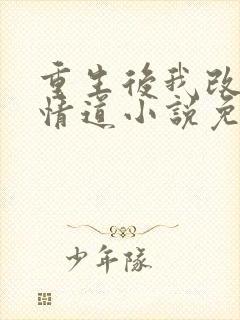 重生後我改
情道小說免
少年隊